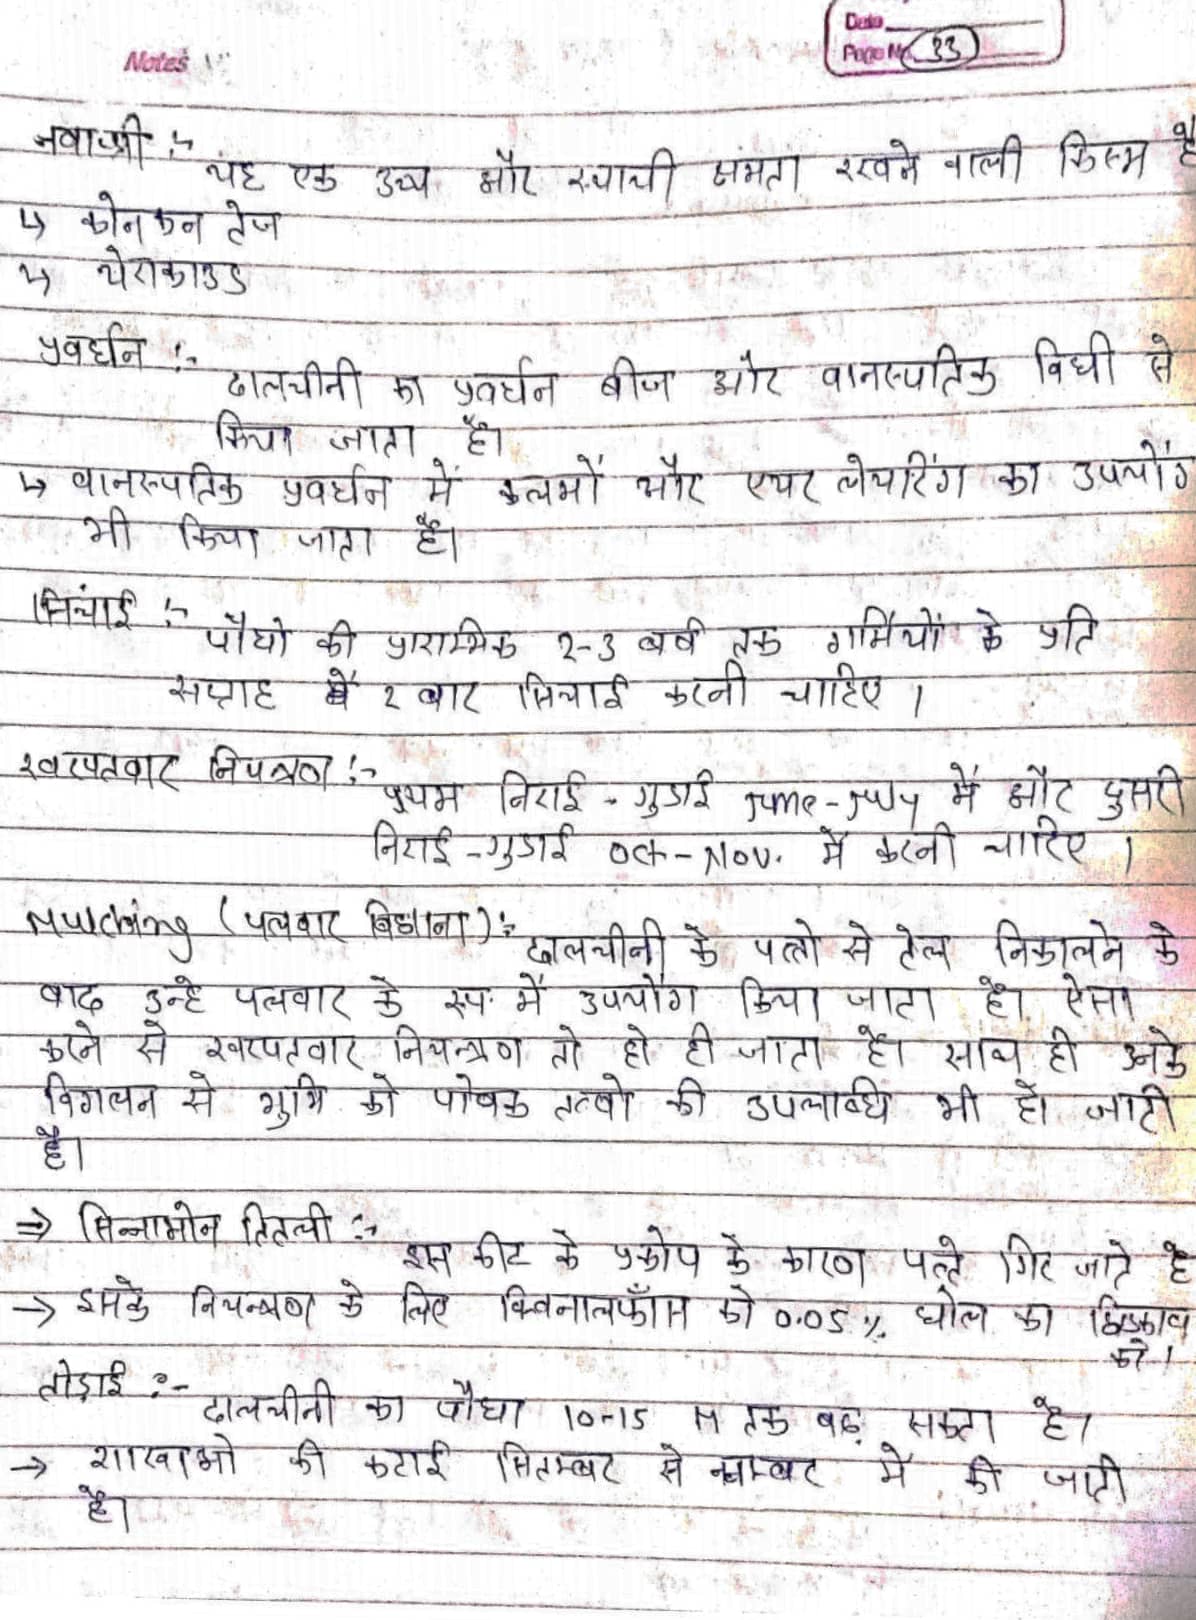 Date
Page No 33
Notes
नवाश्री :-
यह एक उच्च और स्थायी क्षमता रखने वाली किस्म है
↳ कोनकन तेज
↳ येराकाउड
प्रवर्धन :-
दालचीनी का प्रवर्धन बीज और वानस्पतिक विधी से
किया जाता है।
↳ वानस्पतिक प्रवर्धन में कलमों और एयर लेयरिंग का उपयोग
भी किया जाता है।
सिंचाई :-
पौधो की प्रारम्भिक 2-3 वर्ष तक गर्मियों के प्रति
सप्ताह में 2 बार सिचाई करनी चाहिए ।
खरपतवार नियन्त्रण :-
प्रथम निराई - गुडाई June-July में और दुसरी
निराई-गुडाई Oct-Nov. में करनी चाहिए ।
Mulching (पलवार बिछाना) :-
दालचीनी के पत्तो से तेल निकालने के
बाद उन्हे पलवार के रूप में उपयोग किया जाता है। ऐसा
करने से खरपतवार नियन्त्रण तो हो ही जाता है। साथ ही उनके
विगलन से भुमि को पोषक तत्वो की उपलब्धि भी हो जाती
है।
⇒ सिन्नामोन तितली :-
इस कीट के प्रकोप के कारण पत्ते गिर जाते है
→ इसके नियन्त्रण के लिए क्विनालफॉस को 0.05 % घोल का छिडकाव
करे ।
तोड़ाई :-
दालचीनी का पौधा 10-15 M तक बढ़ सकता है।
→ शाखाओ की कटाई सितम्बर से नवम्बर में की जाती
है।